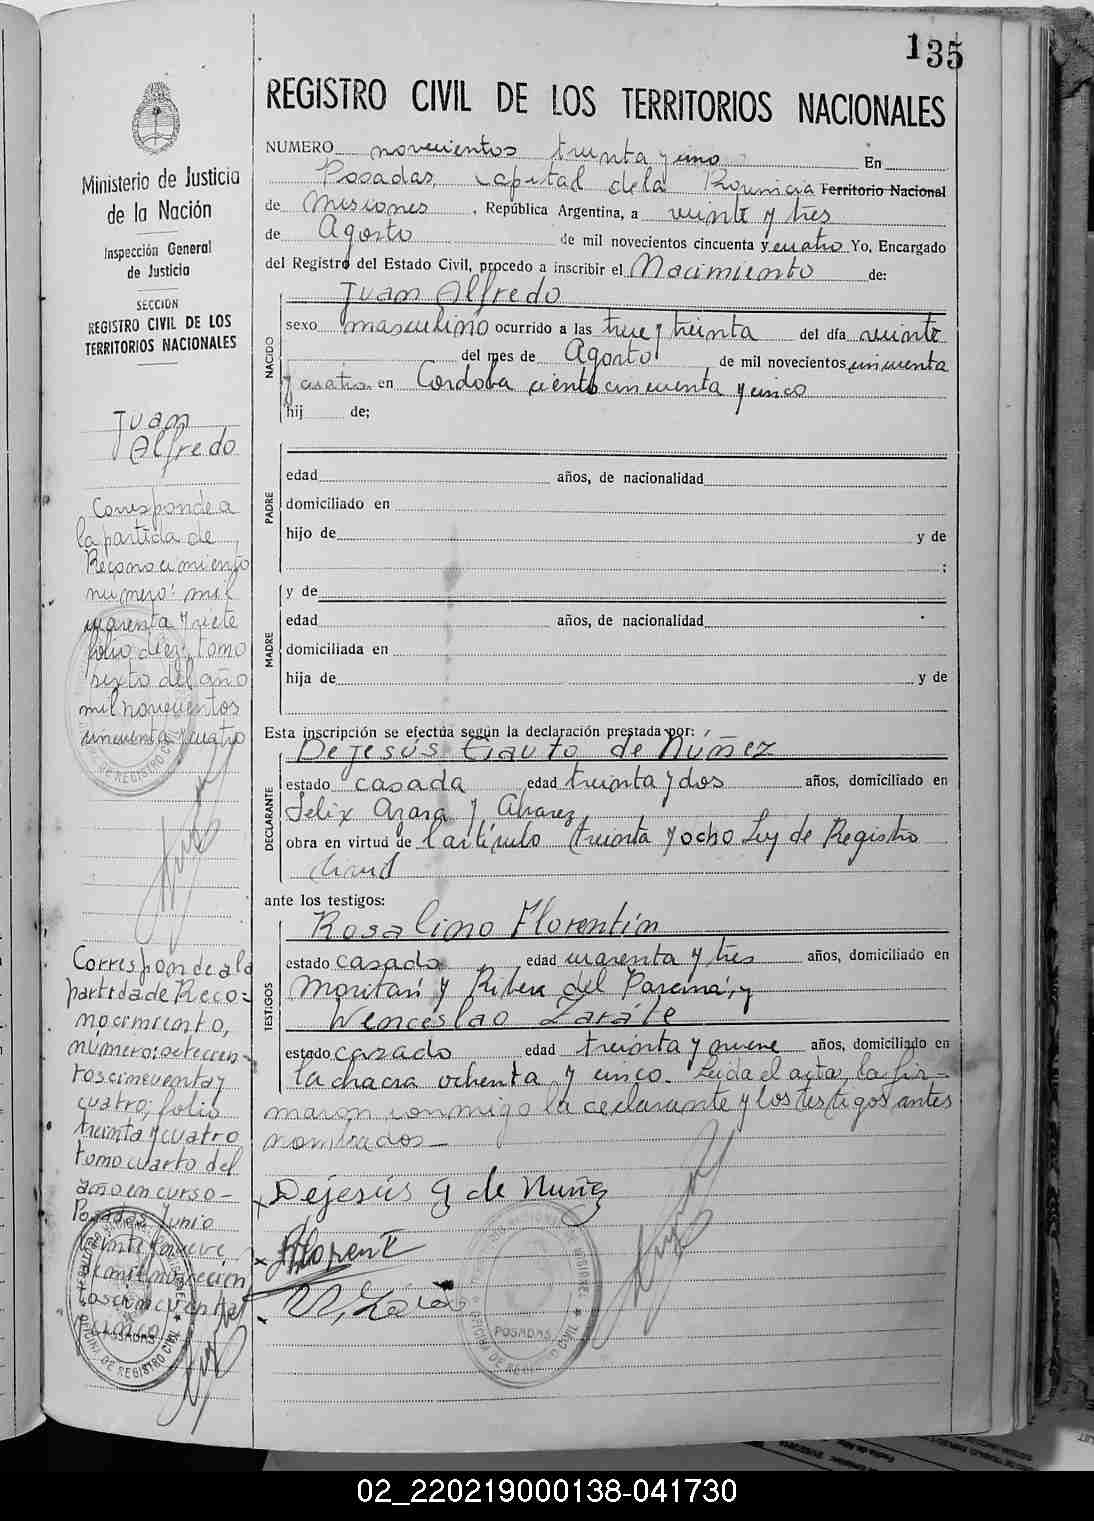 135
Ministerio de Justicia
de la Nación
Inspección General
de Justicia
SECCION
REGISTRO CIVIL DE LOS
TERRITORIOS NACIONALES
Juan
Alfredo
Corresponde a
la partida de
Reconocimiento
numero: mil
cuarenta y siete
folio diez, tomo
sexto del año
mil novecientos
cincuenta y cuatro
Corresponde a la
partida de Reco-
nocimiento,
número: setecien-
tos cincuenta y
cuatro; folio
treinta y cuatro
tomo cuarto del
año en curso-
Posadas, Junio
veinte y nueve
de mil novecien
tos cincuenta y
cinco
REGISTRO CIVIL DE LOS TERRITORIOS NACIONALES
NUMERO novecientos treinta y uno En
Posadas, capital de la Provincia Territorio Nacional
de Misiones, República Argentina, a veinte y tres
de Agosto de mil novecientos cincuenta y cuatro Yo, Encargado
del Registro del Estado Civil, procedo a inscribir el Nacimiento de:
NACIDO
Juan Alfredo
sexo masculino ocurrido a las trece y treinta del día veinte
del mes de Agosto de mil novecientos cincuenta
y cuatro en Cordoba ciento cincuenta y cinco
hij de;
PADRE
edad años, de nacionalidad
domiciliado en
hijo de y de
;
MADRE
y de
edad años, de nacionalidad
domiciliada en
hija de y de
Esta inscripción se efectúa según la declaración prestada por:
DECLARANTE
Dejesús Gauto de Núñez
estado casada edad treinta y dos años, domiciliado en
Felix Azara y Alvarez
obra en virtud de l artículo treinta y ocho Ley de Registro
Civil
ante los testigos:
TESTIGOS
Rosalino Florentín
estado casado edad cuarenta y tres años, domiciliado en
y Ribera del Paraná, y
Wenceslao Zarate
estado casado edad treinta y nueve años, domiciliado en
la chacra ochenta y cinco. Leida el acta, la fir-
maron conmigo la declarante y los testigos antes
nombrados-
Dejesús G de Nuñez
OFICINA DE REGISTRO CIVIL
POSADAS
02_220219000138-041730